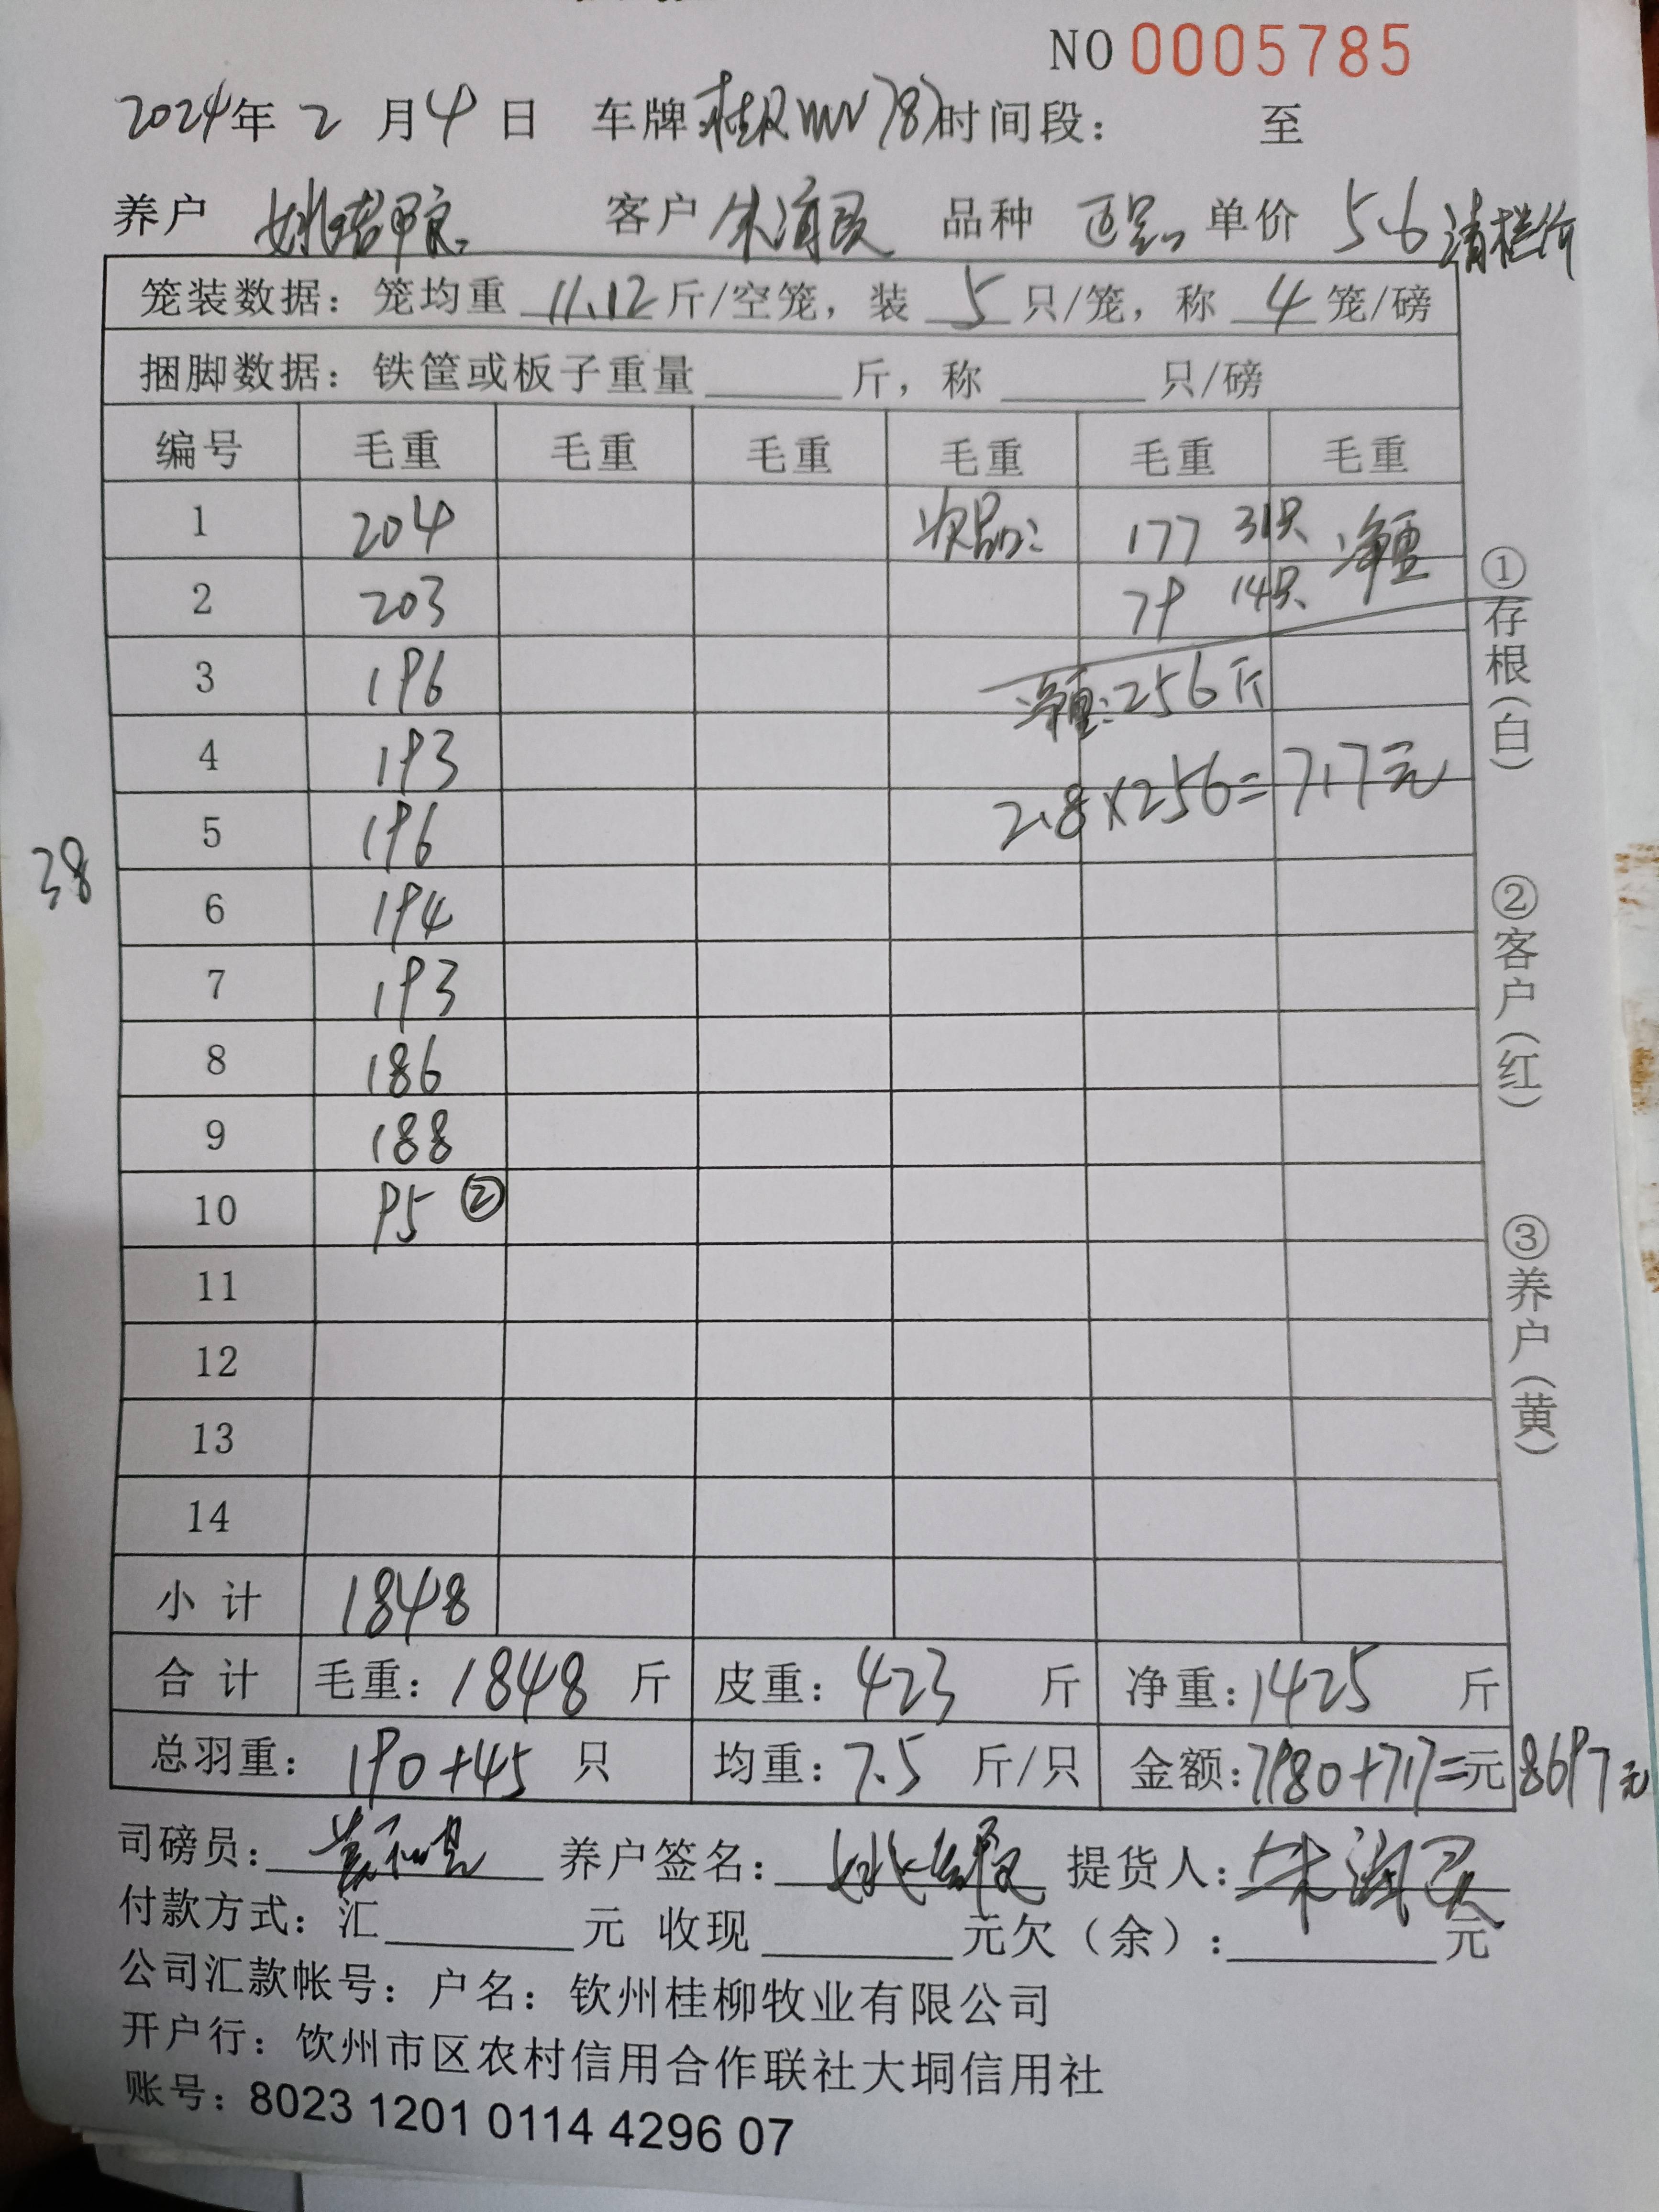 NO 0005785
2024年 2 月 4 日 车牌: 时间段: 至
养户 客户 品种 正品 单价 5.6 清栏价
笼装数据: 笼均重 11.12 斤/空笼, 装 5 只/笼, 称 4 笼/磅
捆脚数据: 铁筐或板子重量 斤, 称 只/磅
编号 毛重 毛重 毛重 毛重 毛重 毛重
1 204 次品: 177 31只 净重
2 203 79 14只
3 196 净重: 256斤
4 193 2.8×256=717元
5 196
38
6 194
7 193
8 186
9 188
10 95 ②
11
12
13
14
小 计 1848
合 计 毛重: 1848 斤 皮重: 423 斤 净重: 1425 斤
总羽重: 190+45 只 均重: 7.5 斤/只 金额: 7980+717=元 8697元
司磅员: 养户签名: 提货人:
付款方式: 汇 元 收现 元欠(余): 元
公司汇款帐号: 户名: 钦州桂柳牧业有限公司
开户行: 钦州市区农村信用合作联社大垌信用社
账号: 8023 1201 0114 4296 07
①存根(白) ②客户(红) ③养户(黄)